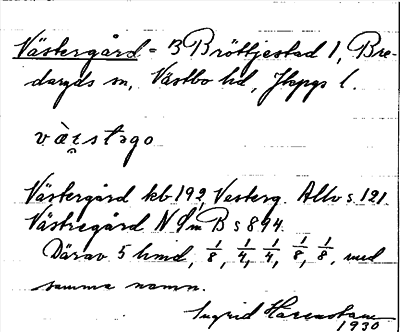 Västergård = B Bröttjestad 1, Bre-
daryds sn, Västbo hd, Jkpgs l.
væ̀rstəgo
Västergård kb 192, Vesterg. Allv s. 121
Västregård NSm B s 894.
Därav 5 hmd, 1/8, 1/4, 1/4, 1/8, 1/8, med
samma namn.
Ingrid Harenstam
1930